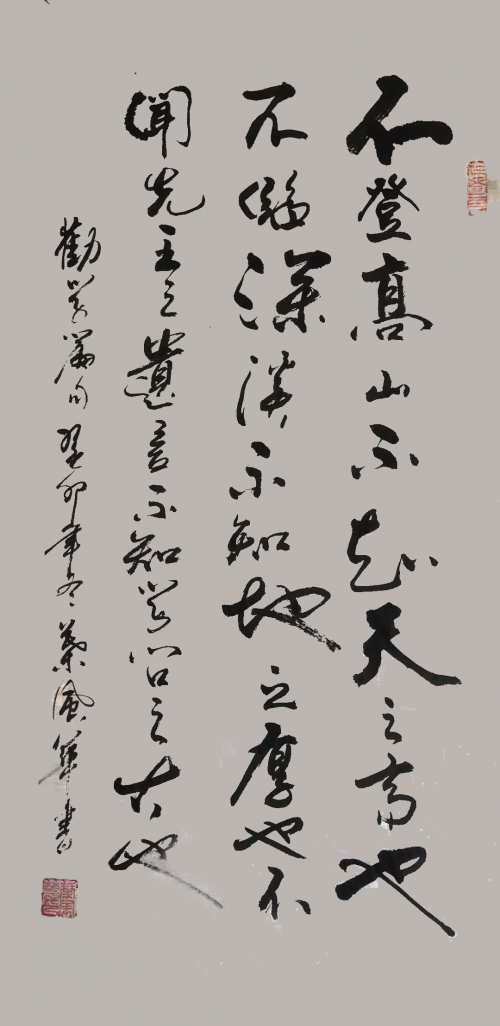 不登高山不知天之高也
不临深溪不知地之厚也不
闻先王之遗言不知学问之大也
劝学篇句癸卯年冬叶风华书